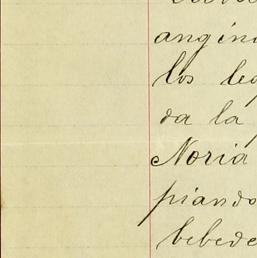 angin
los le
da la
Noria
piando
bebede